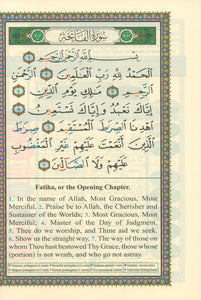 سُورَةُ الْفَاتِحَةِ
بِسْمِ اللَّهِ الرَّحْمَٰنِ الرَّحِيمِ
الْحَمْدُ لِلَّهِ رَبِّ الْعَالَمِينَ الرَّحْمَٰنِ
الرَّحِيمِ مَالِكِ يَوْمِ الدِّينِ
إِيَّاكَ نَعْبُدُ وَإِيَّاكَ نَسْتَعِينُ
اهْدِنَا الصِّرَاطَ الْمُسْتَقِيمَ صِرَاطَ
الَّذِينَ أَنْعَمْتَ عَلَيْهِمْ غَيْرِ الْمَغْضُوبِ
عَلَيْهِمْ وَلَا الضَّالِّينَ
Fatiha, or the Opening Chapter.
1. In the name of Allah, Most Gracious, Most
Merciful. 2. Praise be to Allah, the Cherisher and
Sustainer of the Worlds; 3. Most Gracious, Most
Merciful; 4. Master of the Day of Judgment.
5. Thee do we worship, and Thine aid we seek.
6. Show us the straight way, 7. The way of those on
whom Thou hast bestowed Thy Grace, those whose
(portion) is not wrath, and who go not astray.